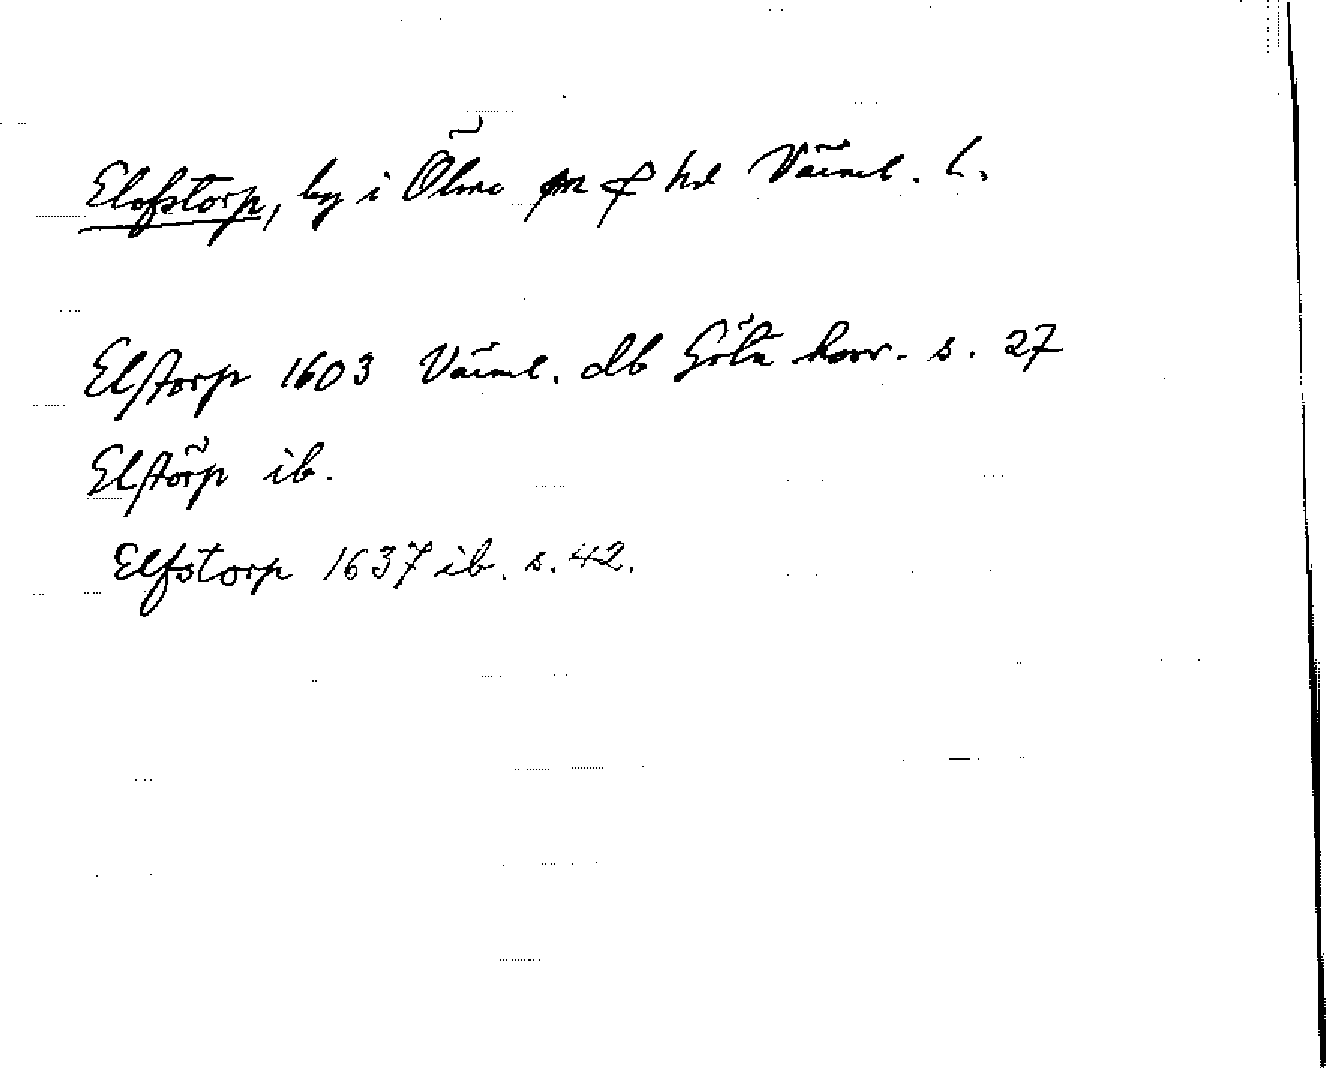 Elofstorp, by i Ölme sn & hd Värml. l.
Elstorp 1603 Värml. db Göta hovr. s. 27
Elstörp ib.
Elfstorp 1637 ib. s. 42.